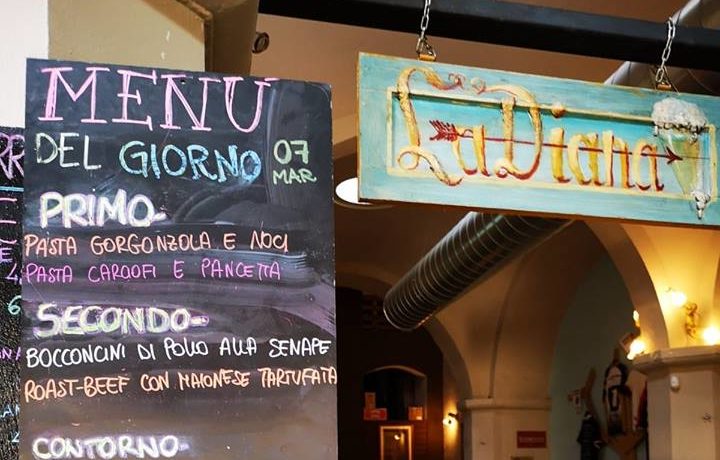 MENU
DEL GIORNO 07 MAR
PRIMO-
PASTA GORGONZOLA E NOCI
PASTA CARCIOFI E PANCETTA
SECONDO-
BOCCONCINI DI POLLO ALLA SENAPE
ROAST-BEEF CON MAIONESE TARTUFATA
CONTORNO-
La Diana